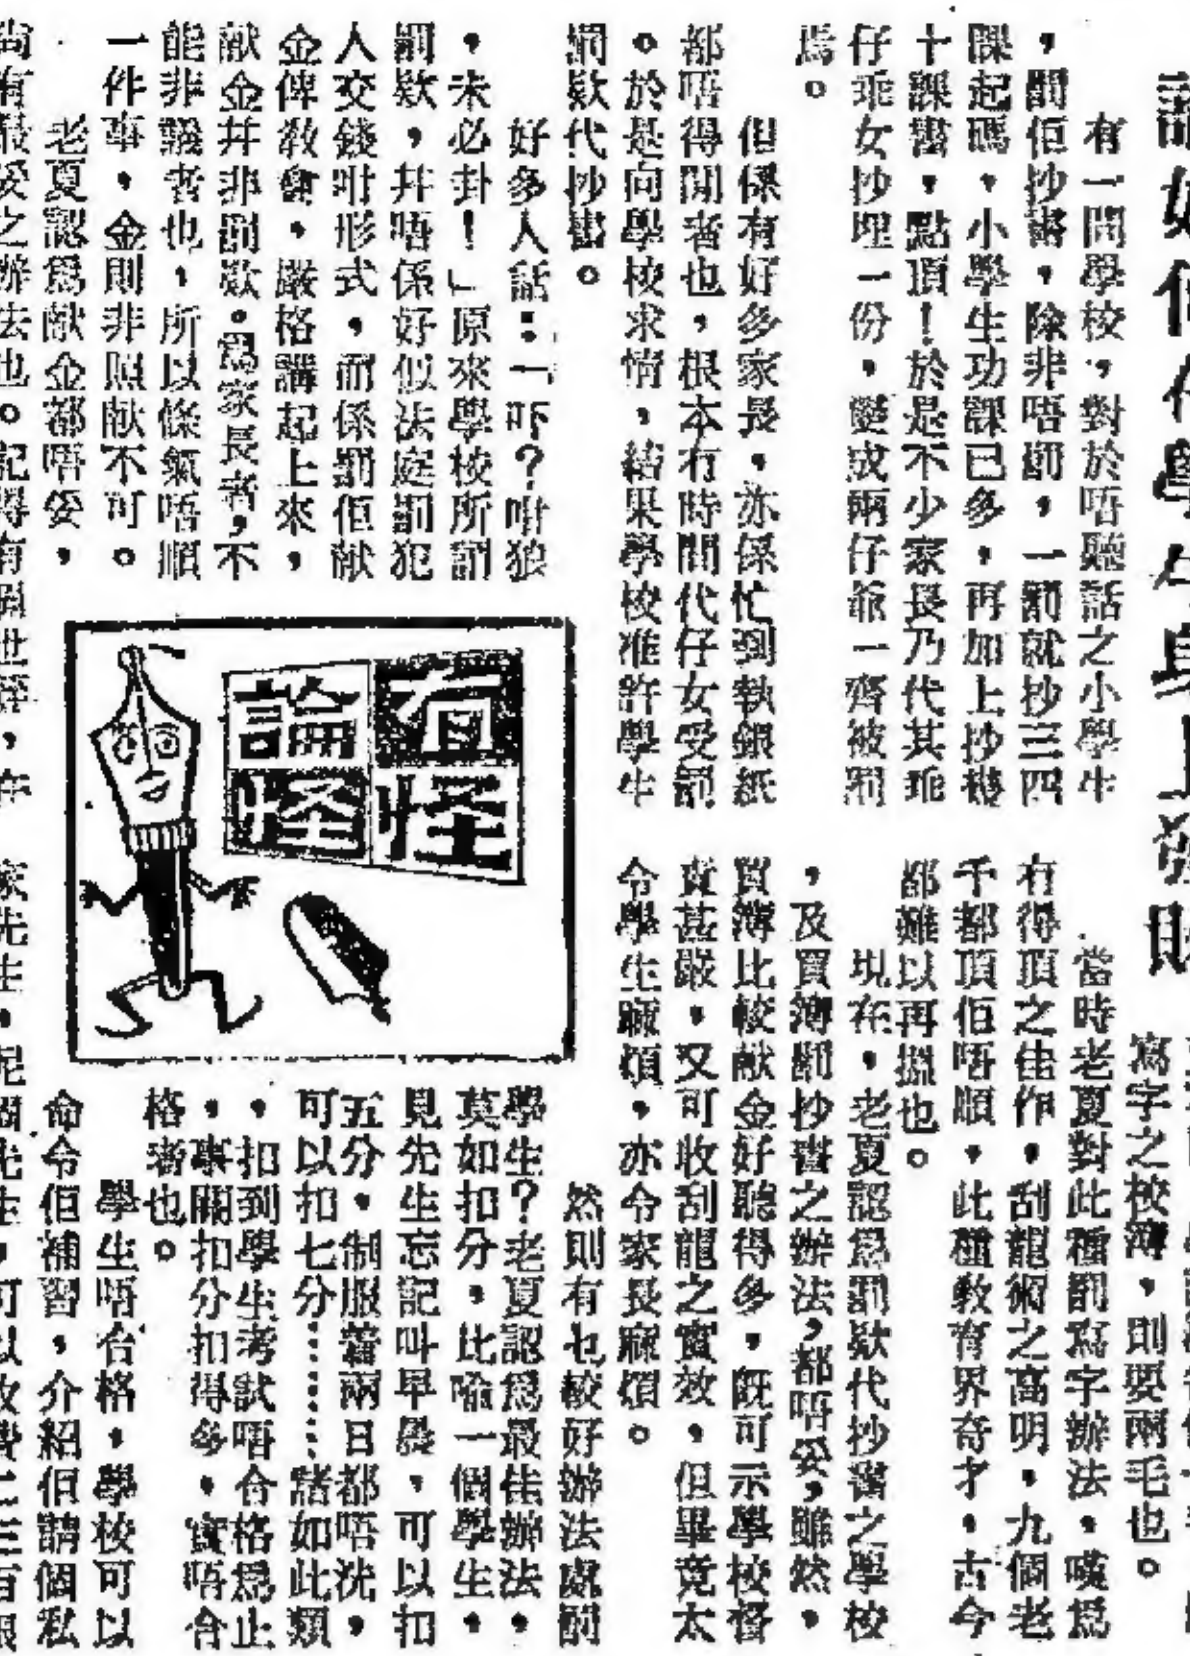 有一間學校，對於唔聽話之小學生
，罰佢抄書，除非唔罰，一罰就抄三四
課起碼，小學生功課已多，再加上抄幾
十課書，點頂！於是不少家長乃代其乖
仔乖女抄埋一份，變成兩仔爺一齊被罰
焉。
但係有好多家長，亦係忙到執銀紙
都唔得閒者也，根本冇時間代仔女受罰
。於是向學校求情，結果學校准許學生
罰欵代抄書。
好多人話：「吓？咁狼
，未必卦！」原來學校所謂
罰欵，幷唔係好似法庭罰犯
人交錢咁形式，而係罰佢献
金俾教會，嚴格講起上來，
献金幷非罰欵。為家長者，不
能非議者也，所以條氣唔順
一件事，金則非照献不可。
老夏認為献金都唔妥，
尚有最妥之辦法也。記得有
有怪
論怪
寫字之校簿，則要兩毛也。
當時老夏對此種罰寫字辦法，嘆為
冇得頂之佳作，刮龍術之高明，九個老
千都頂佢唔順，此種教育界奇才，古今
都難以再搵也。
現在，老夏認為罰欵代抄書之學校
，及買簿罰抄書之辦法，都唔妥，雖然，
買簿比較献金好聽得多，既可示學校督
責甚嚴，又可收刮龍之實效，但畢竟太
令學生麻煩，亦令家長麻煩。
然則有乜較好辦法處罰
學生？老夏認為最佳辦法，
莫如扣分，比喻一個學生，
見先生忘記叫早晨，可以扣
五分，制服著兩日都唔洗，
可以扣七分……諸如此類
，扣到學生考試唔合格為止
，事關扣分扣得多，實唔合
格者也。
學生唔合格，學校可以
命令佢補習，介紹佢請個私
家先生，呢個先生，可以收費二三百銀